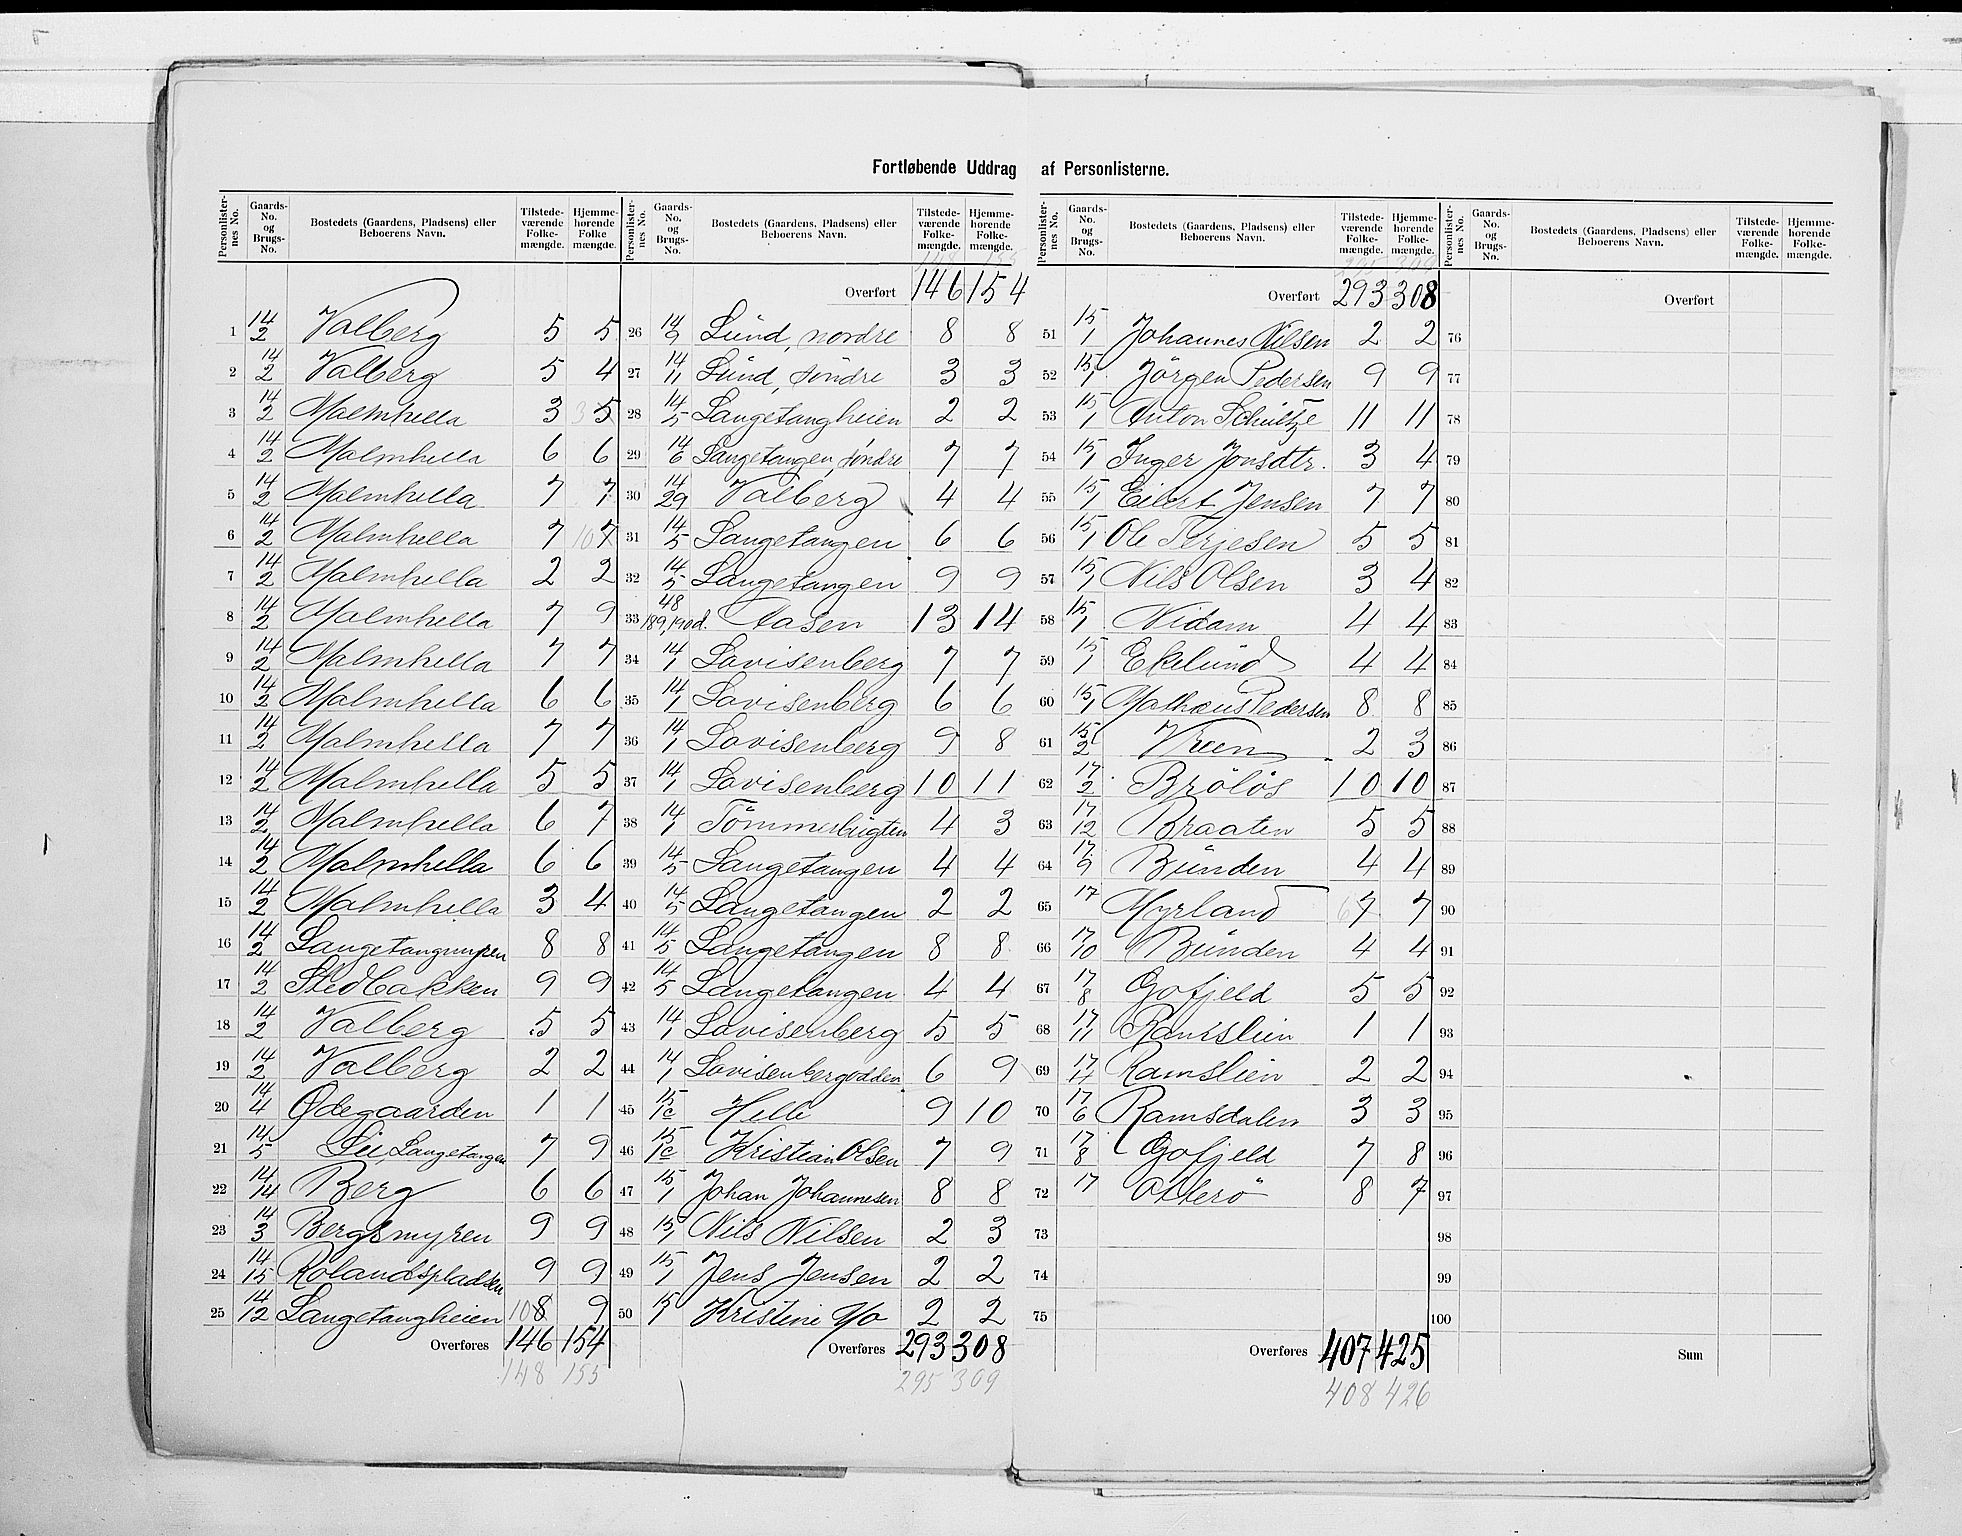 Fortløbende Uddrag af Personlisterne.
Personlister-nes No. | Gaards-No. og Brugs-No. | Bostedets (Gaardens, Pladsens) eller Beboerens Navn. | Tilstede-værende Folke-mængde. | Hjemme-hørende Folke mængde.
1 14/2 Valberg 5 5
2 14/2 Valberg 5 4
3 14/2 Malmhella 3 3 5
4 14/2 Malmhella 6 6
5 14/2 Malmhella 7 7
6 14/2 Malmhella 7 10 7
7 14/2 Malmhella 2 2
8 14/2 Malmhella 7 9
9 14/2 Malmhella 7 7
10 14/2 Malmhella 6 6
11 14/2 Malmhella 7 7
12 14/2 Malmhella 5 5
13 14/2 Malmhella 6 7
14 14/2 Malmhella 6 6
15 14/2 Malmhella 3 4
16 14/2 Langetangmyren 8 8
17 14/2 Stedbakken 9 9
18 14/2 Valberg 5 5
19 14/2 Valberg 2 2
20 14/4 Ødegaarden 1 1
21 14/5 Lie, Langetangen 7 9
22 14/14 Berg 6 6
23 14/3 Bergsmyren 9 9
24 14/15 Rolandspladsen 9 9
25 14/12 Langetangheien 10 8 9
Overføres 146 154
148 155
Personlister-nes No. | Gaards-No. og Brugs-No. | Bostedets (Gaardens, Pladsens) eller Beboerens Navn. | Tilstede-værende Folke-mængde. | Hjemme-hørende Folke-mængde.
Overført 146 154
26 14/9 Lund, nordre 8 8
27 14/11 Lund, søndre 3 3
28 14/5 Langetangheien 2 2
29 14/6 Langetangen, søndre 7 7
30 14/29 Valberg 4 4
31 14/5 Langetangen 6 6
32 14/5 Langetangen 9 9
33 48/189,190d. Aasen 13 14
34 14/1 Lovisenberg 7 7
35 14/1 Lovisenberg 6 6
36 14/1 Lovisenberg 9 8
37 14/1 Lovisenberg 10 11
38 14/1 Tömmerbugten 4 3
39 14/5 Langetangen 4 4
40 14/5 Langetangen 2 2
41 14/5 Langetangen 8 8
42 14/5 Langetangen 4 4
43 14/1 Lovisenberg 5 5
44 14/1 Lovisenbergodden 6 9
45 15/1c Helle 9 10
46 15/1c Kristian Olsen 7 9
47 15/1 Johan Johannesen 8 8
48 15/1 Nils Nilsen 2 3
49 15/1 Jens Jensen 2 2
50 15/1 Kristine Mo 2 2
Overføres 293 308
295 309
Personlister-nes No. | Gaards-No. og Brugs-No. | Bostedets (Gaardens, Pladsens) eller Beboerens Navn. | Tilstede-værende Folke-mængde. | Hjemme-hørende Folke-mængde.
295 309
Overført 293 308
51 15/1 Johannes Nilsen 2 2
52 15/1 Jörgen Pedersen 9 9
53 15/1 Anton Schultze 11 11
54 15/1 Inger Jonsdtr. 3 4
55 15/1 Eilert Jensen 7 7
56 15/1 Ole Terjesen 5 5
57 15/1 Nils Olsen 3 4
58 15/1 Nidam 4 4
59 15/1 Ekelund 4 4
60 15/1 Mathæus Pedersen 8 8
61 15/2 Vreen 2 3
62 17/2 Bröløs 10 10
63 17/12 Braaten 5 5
64 17/9 Bunden 4 4
65 17 Myrland 6 7 7
66 17/10 Bunden 4 4
67 17/8 Gofjeld 5 5
68 17/11 Ramslien 1 1
69 17/4 Ramslien 2 2
70 17/6 Ramsdalen 3 3
71 17/8 Gofjeld 7 8
72 17 Otterö 8 7
73
74
75
Overføres 407 425
408 426
Personlister-nes No. | Gaards-No. og Brugs-No. | Bostedets (Gaardens, Pladsens) eller Beboerens Navn. | Tilstede-værende Folke-mængde. | Hjemme-hørende Folke-mængde.
Overført
76
77
78
79
80
81
82
83
84
85
86
87
88
89
90
91
92
93
94
95
96
97
98
99
100
Sum